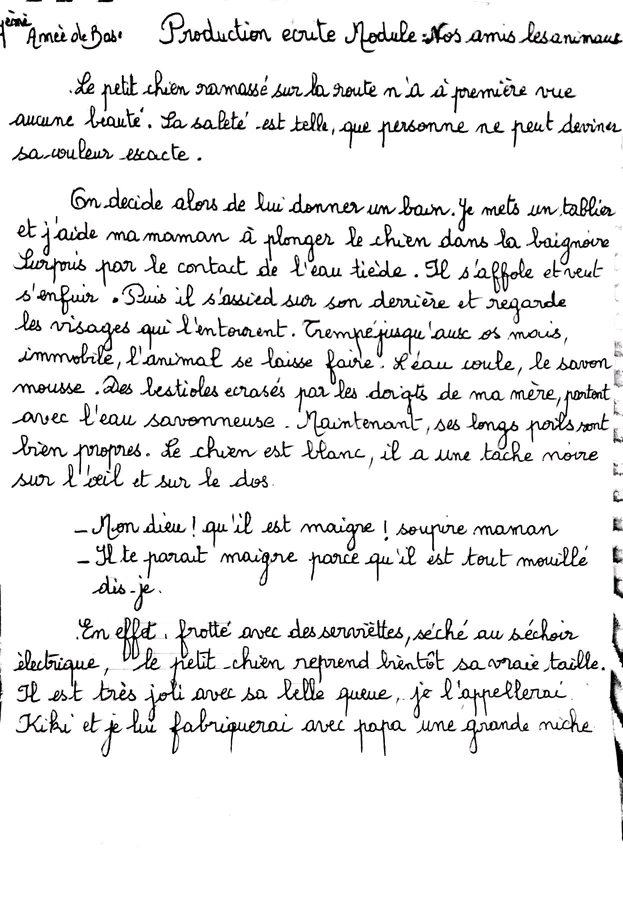 ème Année de Base Production ecrite Module : Nos amis les animaux
Le petit chien ramassé sur la route n'a à première vue
aucune beauté. La saleté est telle, que personne ne peut deviner
sa couleur escacte.
On decide alors de lui donner un bain. Je mets un tablier
et j'aide ma maman à plonger le chien dans la baignoire
Surpris par le contact de l'eau tiède. Il s'affole et veut
s'enfuir. Puis il s'assied sur son derrière et regarde
les visages qui l'entourent. Trempé jusqu'aux os mais,
immobile, l'animal se laisse faire. L'éau coule, le savon
mousse. Des bestioles ecrasés par les doigts de ma mère, partent
avec l'eau savonneuse. Maintenant, ses longs poils sont
bien propres. Le chien est blanc, il a une tache noire
sur l'œil et sur le dos
- Mon dieu ! qu'il est maigre ! soupire maman
- Il te parait maigre parce qu'il est tout mouillé
dis-je.
En effet, frotté avec des serviettes, séché au séchoir
èlectrique, le petit chien reprend bientôt sa vraie taille.
Il est très joli avec sa belle queue, je l'appellerai
Kiki et je lui fabriquerai avec papa une grande niche